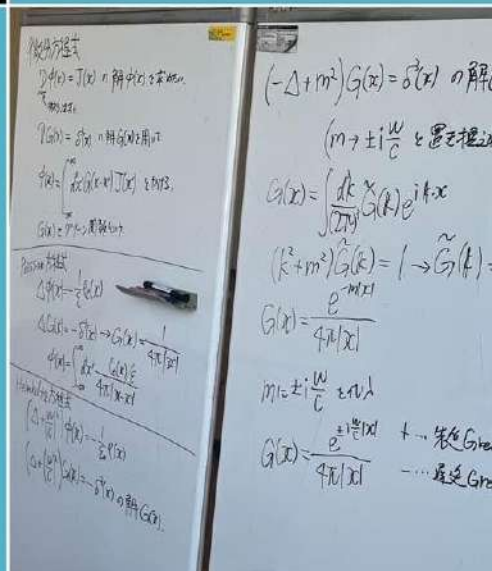 微分方程式
Dφ(x) = J(x) の解 φ(x) を求めたい.
DG(x) = δ(x) の解 G(x) を用いて
φ(x) = ∫dx'G(x-x')J(x') とかける.
G(x) を グリーン関数という
Poisson方程式
Δφ(x) = -1/ε ρ(x)
ΔG(x) = -δ³(x) → G(x) = 1/4π|x|
φ(x) = ∫dx' ρ(x')/ε / 4π|x-x'|
Helmholtz方程式
(Δ+(ω/c)²)φ(x) = -1/ε ρ(x)
(Δ+(ω/c)²)G(x) = -δ³(x) の解 G(x).
(-Δ+m²)G(x) = δ³(x) の解
(m → ±i ω/c と置き換
G(x) = ∫ dk/(2π)³ G̃(k) e^{ik·x}
(k²+m²)G̃(k) = 1 → G̃(k) =
G(x) = e^{-m|x|}/4π|x|
m = ±i ω/c を代入
G(x) = e^{±i ω/c |x|}/4π|x|
+ … 先進Gre
- … 遅延Gre